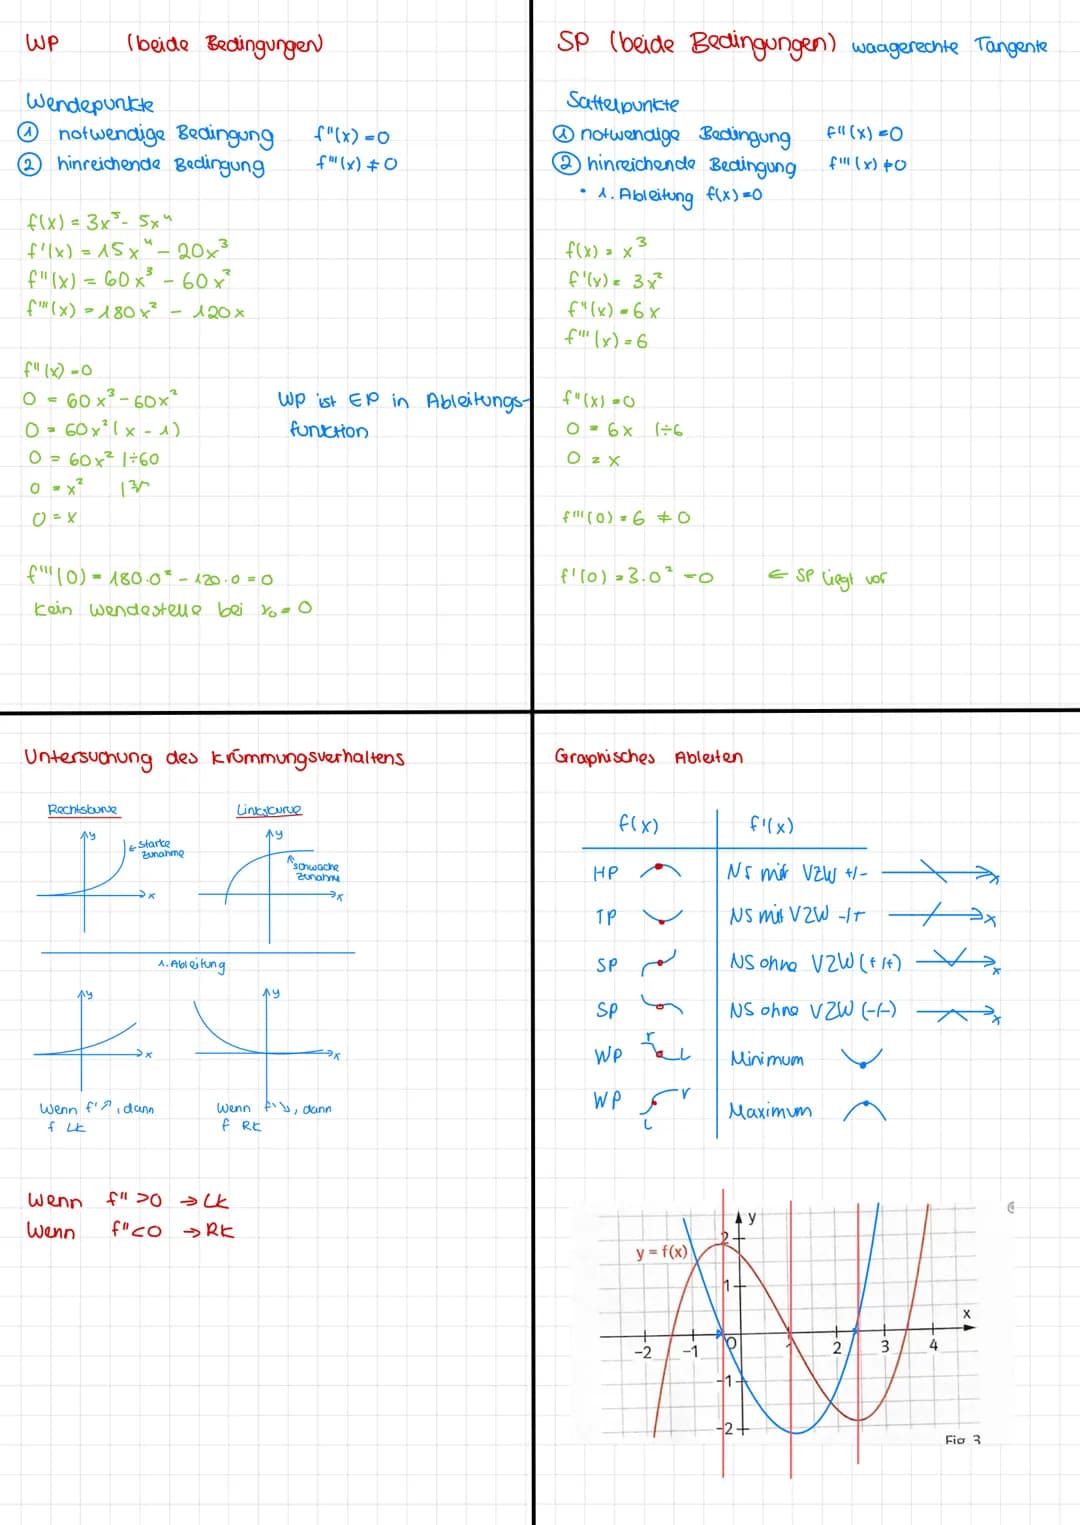 WP (beide Bedingungen)
Wendepunkte
① notwendige Bedingung f''(x) = 0
② hinreichende Bedingung f'''(x) ≠ 0
f(x) = 3x⁵ - 5x⁴
f'(x) = 15x⁴ - 20x³
f''(x) = 60x³ - 60x²
f'''(x) = 180x² - 120x
f''(x) = 0
0 = 60x³ - 60x²
0 = 60x² (x - 1)
0 = 60x² |÷60
0 = x²
0 = x
WP ist EP in Ableitungs-
funktion
f'''(0) = 180·0² - 120·0 = 0
Kein Wendestelle bei x₀ = 0
SP (beide Bedingungen) waagerechte Tangente
Sattelpunkte
① notwendige Bedingung f''(x) = 0
② hinreichende Bedingung f'''(x) ≠ 0
• 1. Ableitung f(x) = 0
f(x) = x³
f'(x) = 3x²
f''(x) = 6x
f'''(x) = 6
f''(x) = 0
0 = 6x |÷6
0 = x
f'''(0) = 6 ≠ 0
f'(0) = 3·0² = 0 ← SP liegt vor
Untersuchung des Krümmungsverhaltens
Rechtskurve Linkskurve
y y
← starke
Zunahme
schwache
Zunahme
x x
1. Ableitung
y y
x x
Wenn f'↗, dann
f LK
Wenn f'↘, dann
f RK
Wenn f'' > 0 → LK
Wenn f'' < 0 → RK
Graphisches Ableiten
f(x) f'(x)
HP NS mit VZW +/- x
TP NS mit VZW -/+ x
SP NS ohne VZW (+/+) x
SP NS ohne VZW (-/-) x
WP r L Minimum
WP L r Maximum
y
2
y = f(x)
1
x
-2 -1 0 1 2 3 4
-1
-2
Fig 3